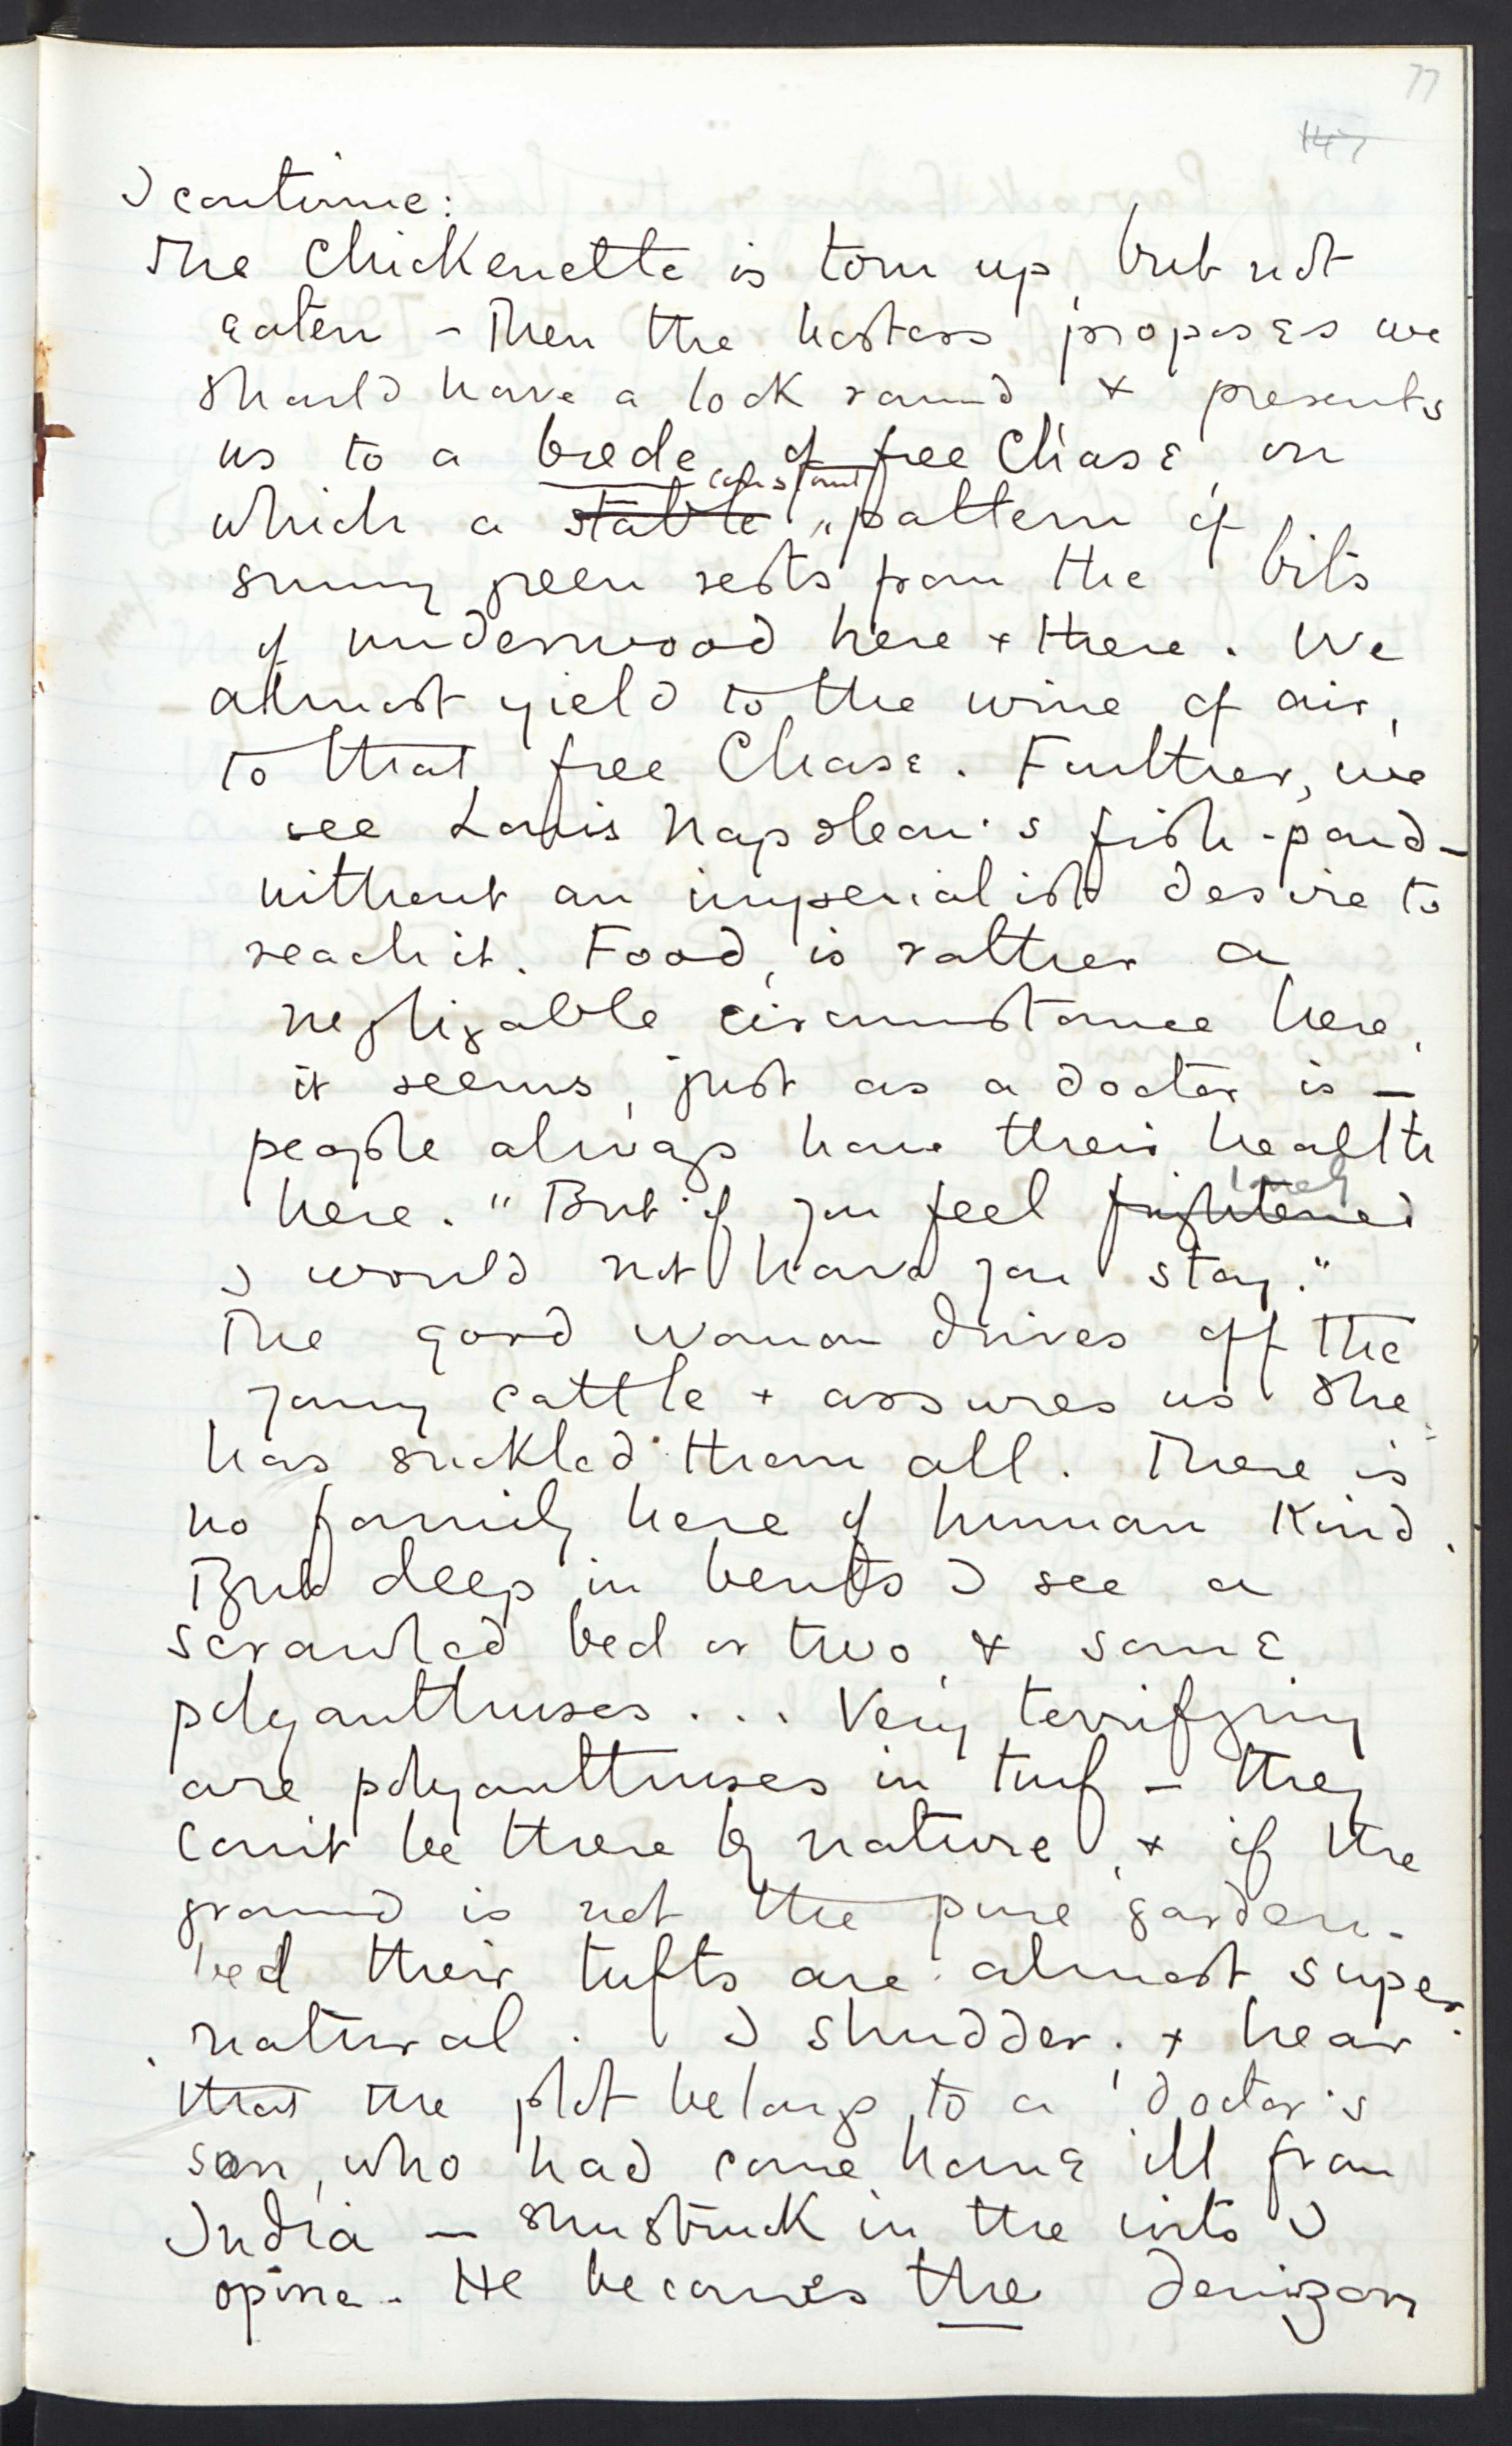 77
147
I continue:
The Chickenette is torn up, but not
eaten – Then the hostess proposes we
should have a look round & presents
us to a brede of free Chase, on
which a stable constant pattern of
sunny green rests from the bits
of underwood here & there. We
almost yield to the wine of air,
to that free Chase. Further, we
see Louis Napoleon's fish-pond –
without an imperialist desire to
reach it. Food, is rather a
negligable circumstance here,
it seems, just as a doctor is –
people always have their health
here. "But if you feel frightened lonely
I would not have you stay."
The good woman drives off the
young cattle & assures us she
has suckled them all. There is
no family here of human Kind.
But deep in bents I see a
scrawled bed or two, & some
polyanthuses . . . Very terrifying
are polyanthuses in turf – they
can't be there by nature, & if the
ground is not the pure garden-
bed their tufts are almost super
natural. I shudder. & hear
that the plot belongs to a doctor's
son, who had come home ill from
India – sunstruck in the wits I
opine. He becomes the denizen